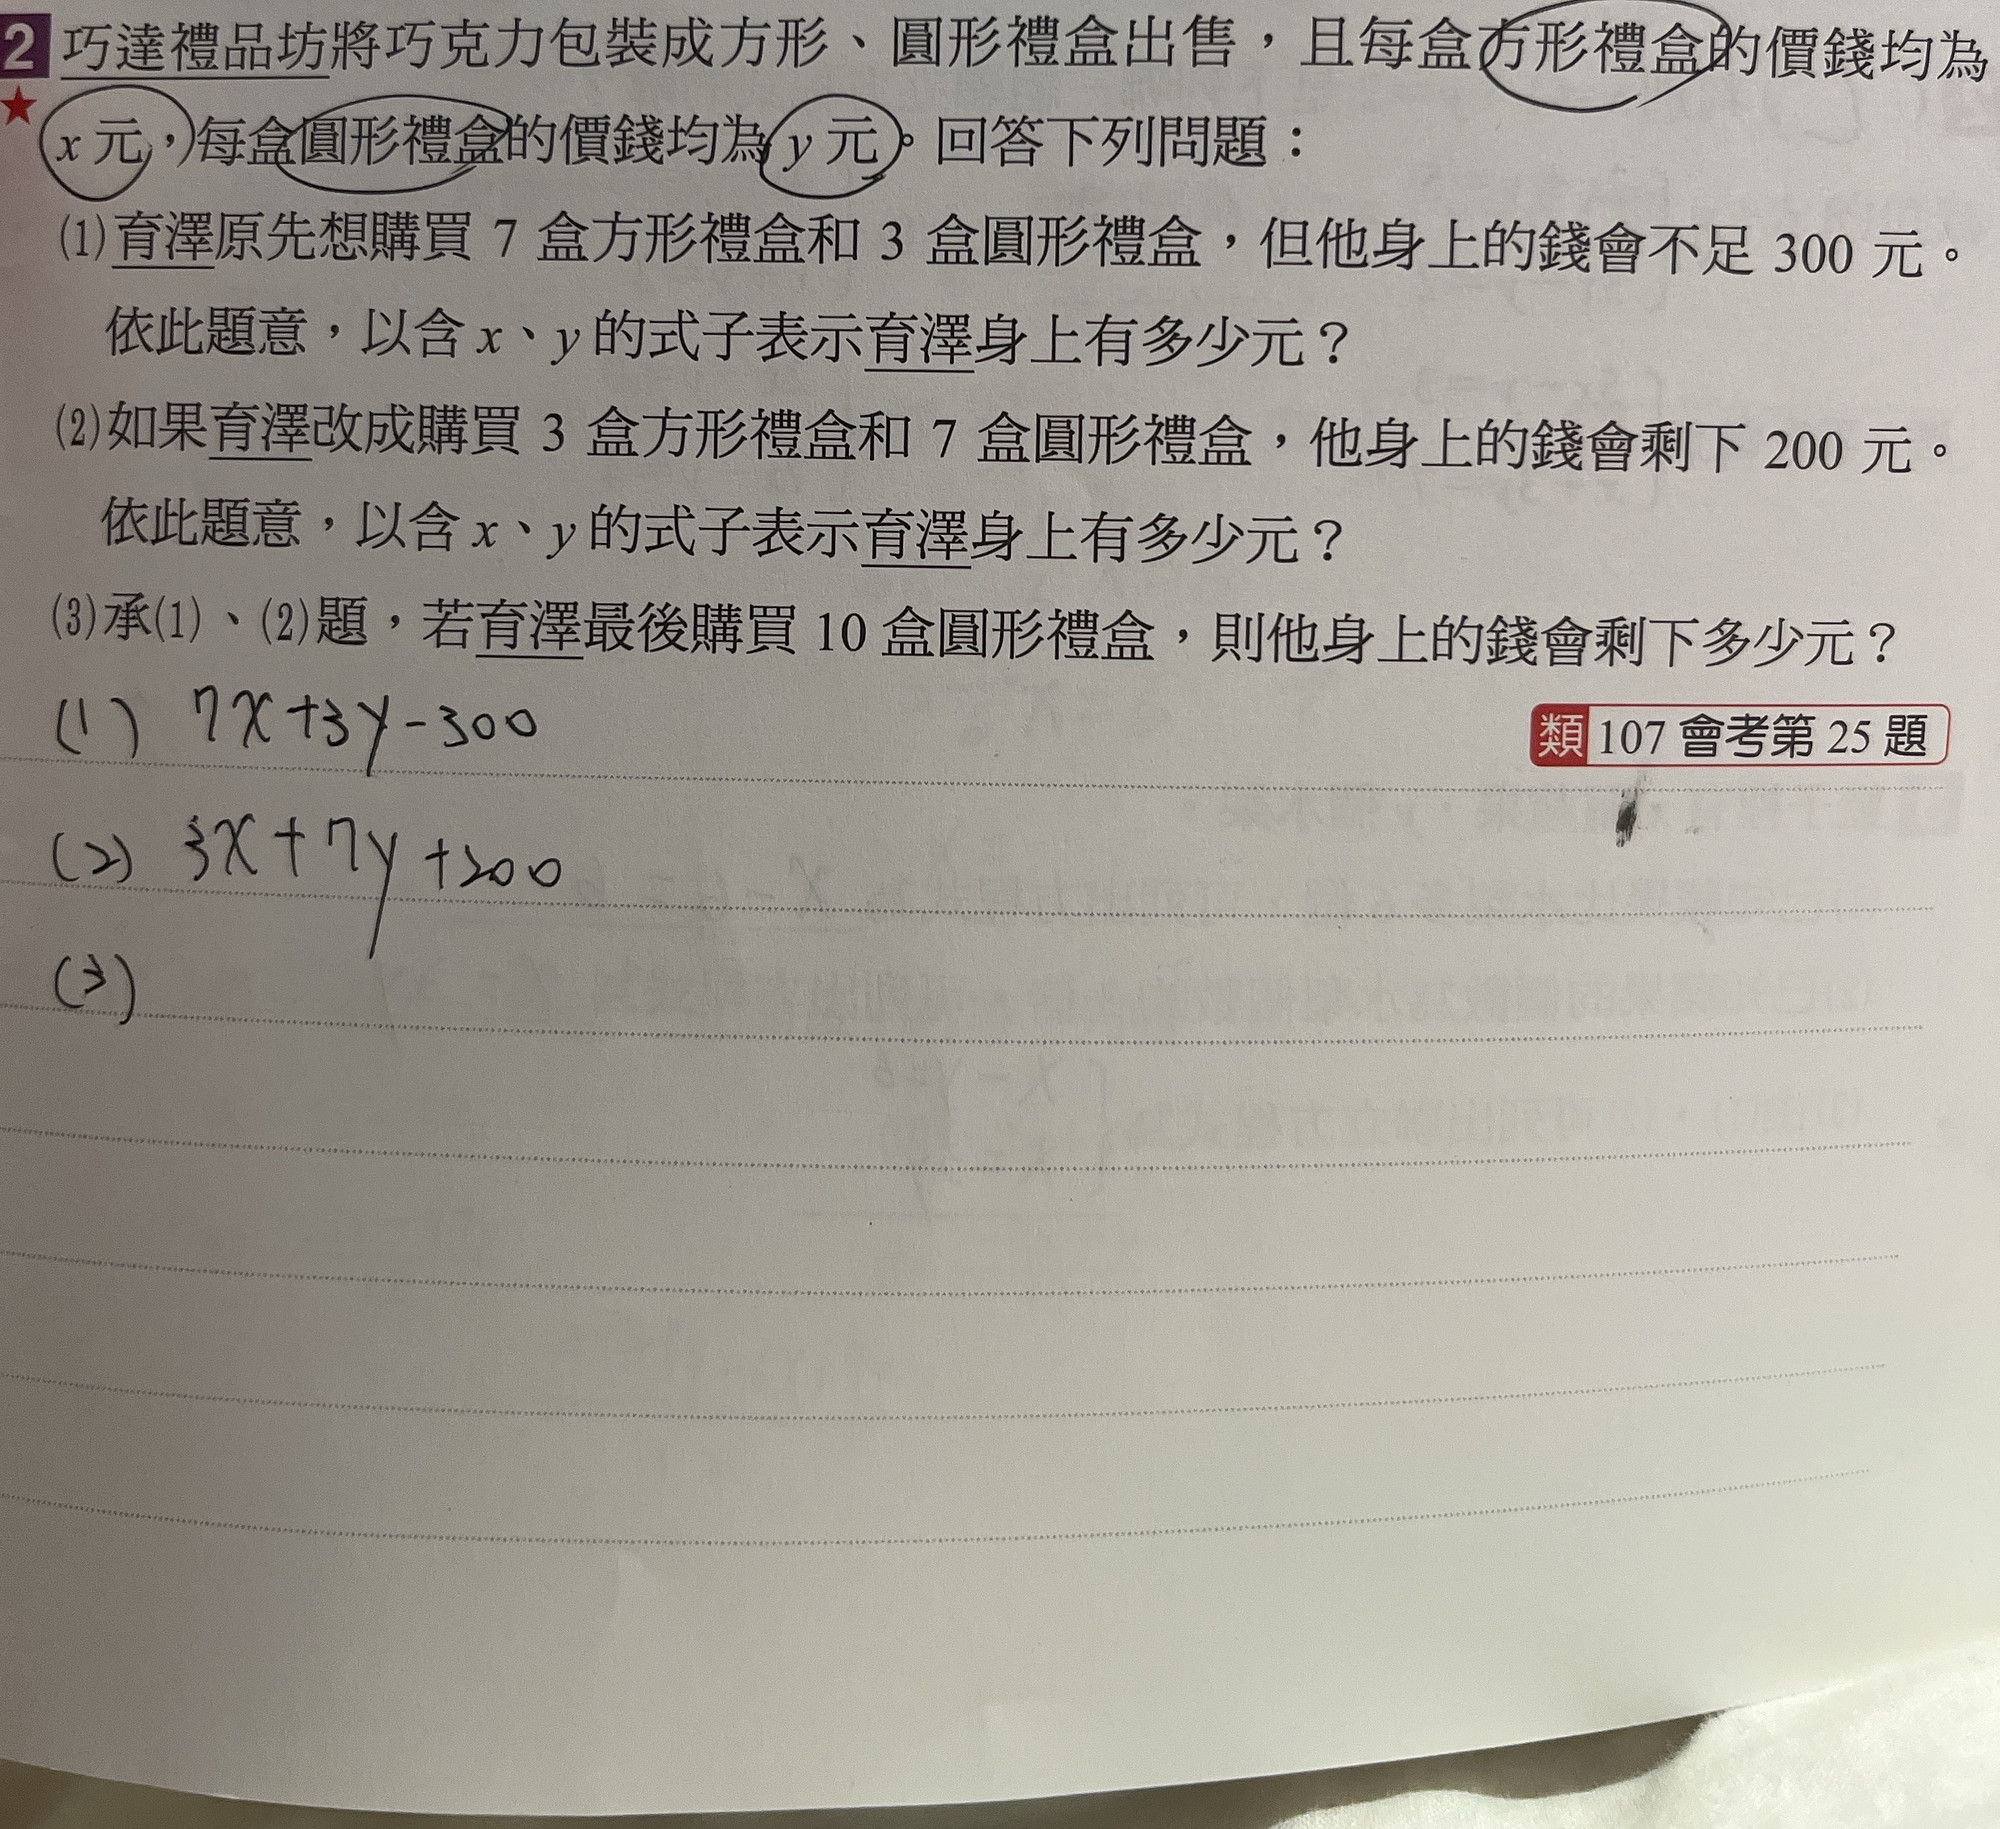 2 巧達禮品坊將巧克力包裝成方形、圓形禮盒出售，且每盒方形禮盒的價錢均為
★ x 元，每盒圓形禮盒的價錢均為 y 元。回答下列問題：
(1)育澤原先想購買 7 盒方形禮盒和 3 盒圓形禮盒，但他身上的錢會不足 300 元。
依此題意，以含 x、y 的式子表示育澤身上有多少元？
(2)如果育澤改成購買 3 盒方形禮盒和 7 盒圓形禮盒，他身上的錢會剩下 200 元。
依此題意，以含 x、y 的式子表示育澤身上有多少元？
(3)承(1)、(2)題，若育澤最後購買 10 盒圓形禮盒，則他身上的錢會剩下多少元？
(1) 7x+3y-300
類 107 會考第 25 題
(2) 3x+7y+200
(3)